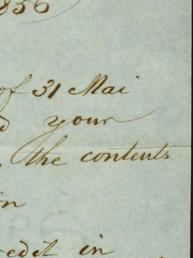 1856
of 31 Mai
your
the contents
in
credit in